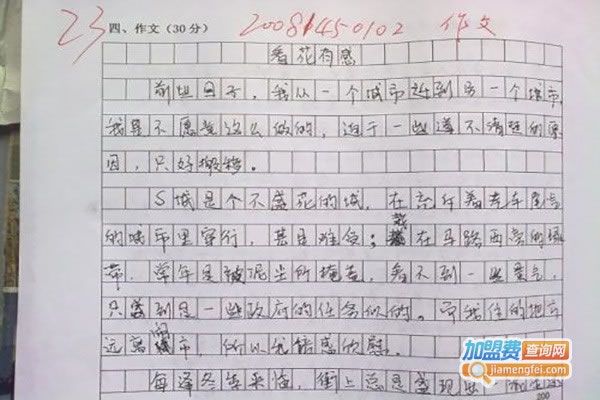 23 四、作文(30分) 2008145-0102 作文
看花有感
前些日子,我从一个城市迁到另一个城市,
我是不愿意这么做的,迫于一些道不清楚的原
因,只好搬移。
S城是个不盛花的城,在
的城市里穿行,甚是难受;栽在马路西旁的绿
带,常年是被泥尘所掩盖,看不到一些景色,
只到是一些政府的任务似的。可我住的地方
远离闹市,所以我稍感欣慰。
每逢冬季来临,街上总是盛现出
200
加盟费查询网
jiamengfei.com